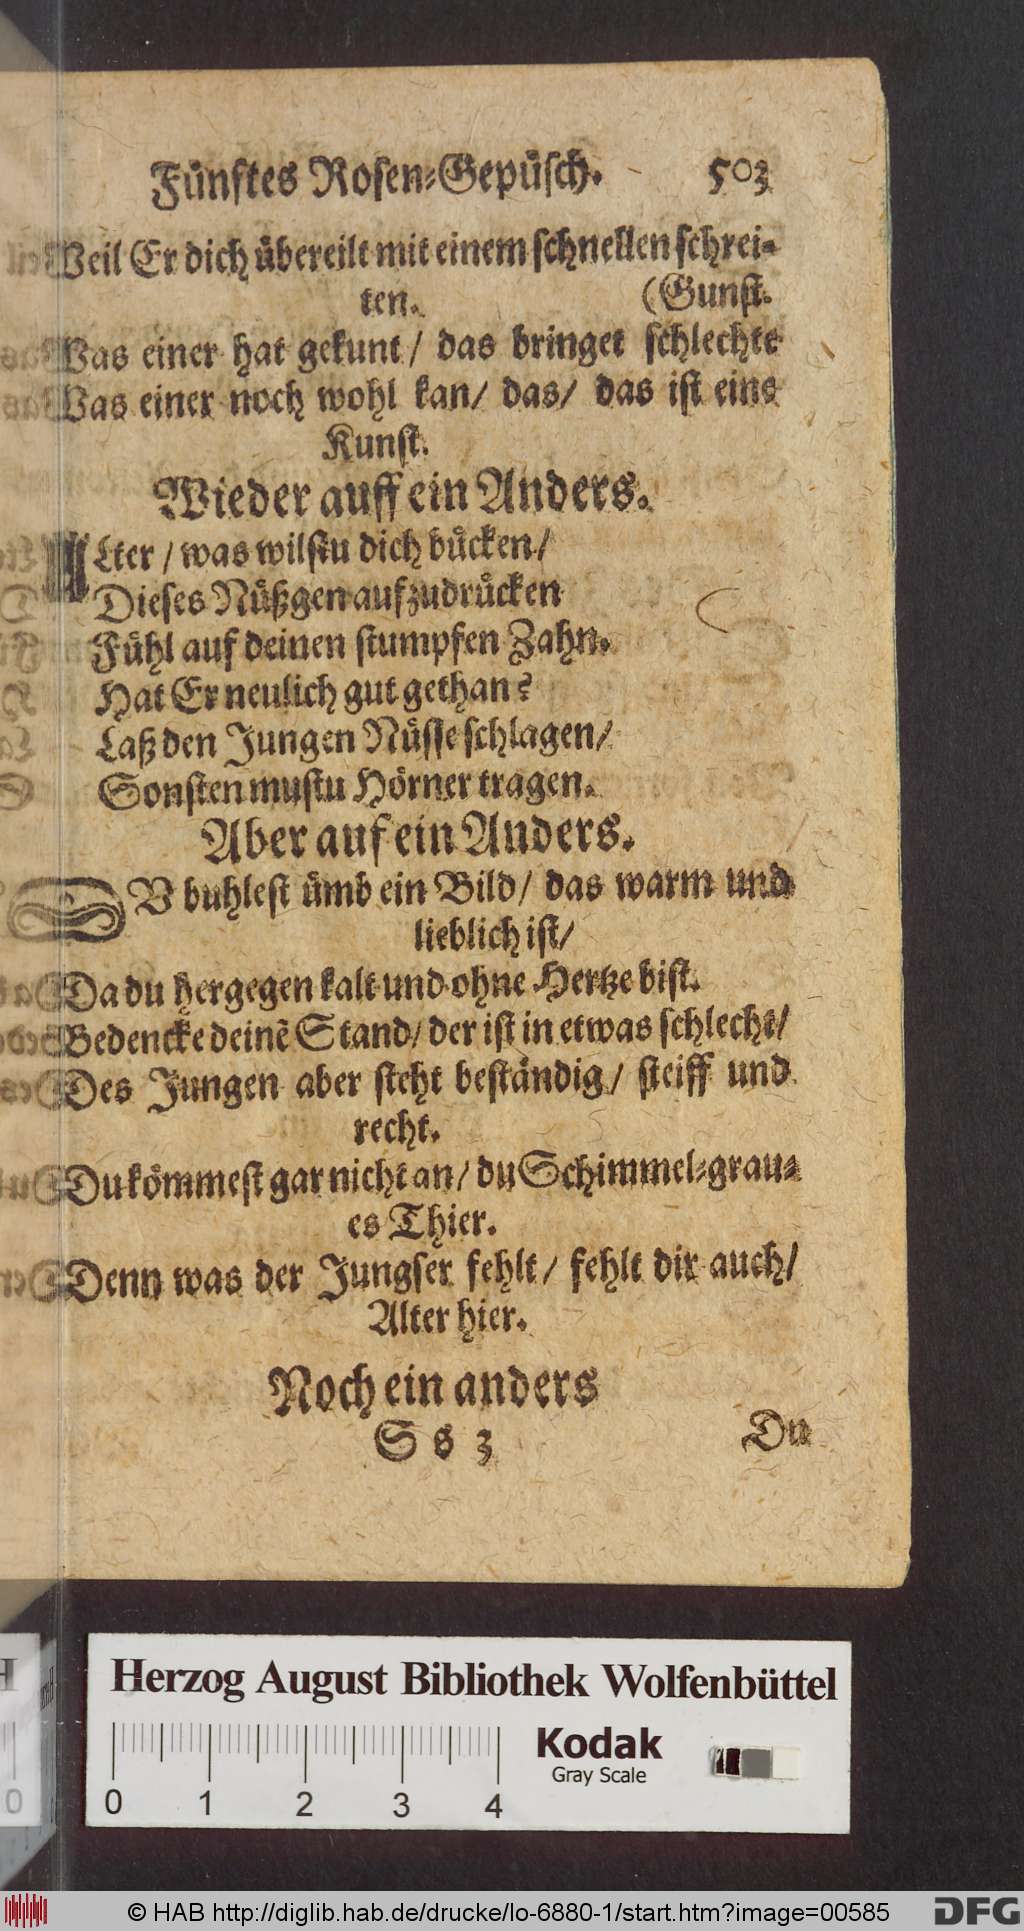 Fünftes Rosen-Gepüsch. 503
Weil Er dich übereilt mit einem schnellen schrei-
ten. (Gunst.
Was einer hat gekunt / das bringet schlechte
Was einer noch wohl kan / das / das ist eine
Kunst.
Wieder auff ein Anders.
ALter / was wilstu dich bücken /
Dieses Nüßgen aufzudrücken
Fühl auf deinen stumpfen Zahn.
Hat Er neulich gut gethan?
Laß den Jungen Nüsse schlagen /
Sonsten mustu Hörner tragen.
Aber auf ein Anders.
DU buhlest ümb ein Bild / das warm und
lieblich ist /
Da du hergegen kalt und ohne Hertze bist.
Bedencke deinē Stand / der ist in etwas schlecht /
Des Jungen aber steht beständig / steiff und
recht.
Du kömmest gar nicht an / du Schimmel-grau-
es Thier.
Denn was der Jungfer fehlt / fehlt dir auch /
Alter hier.
Noch ein anders
S s 3 Du
Herzog August Bibliothek Wolfenbüttel
Kodak
Gray Scale
0 1 2 3 4
© HAB http://diglib.hab.de/drucke/lo-6880-1/start.htm?image=00585
DFG